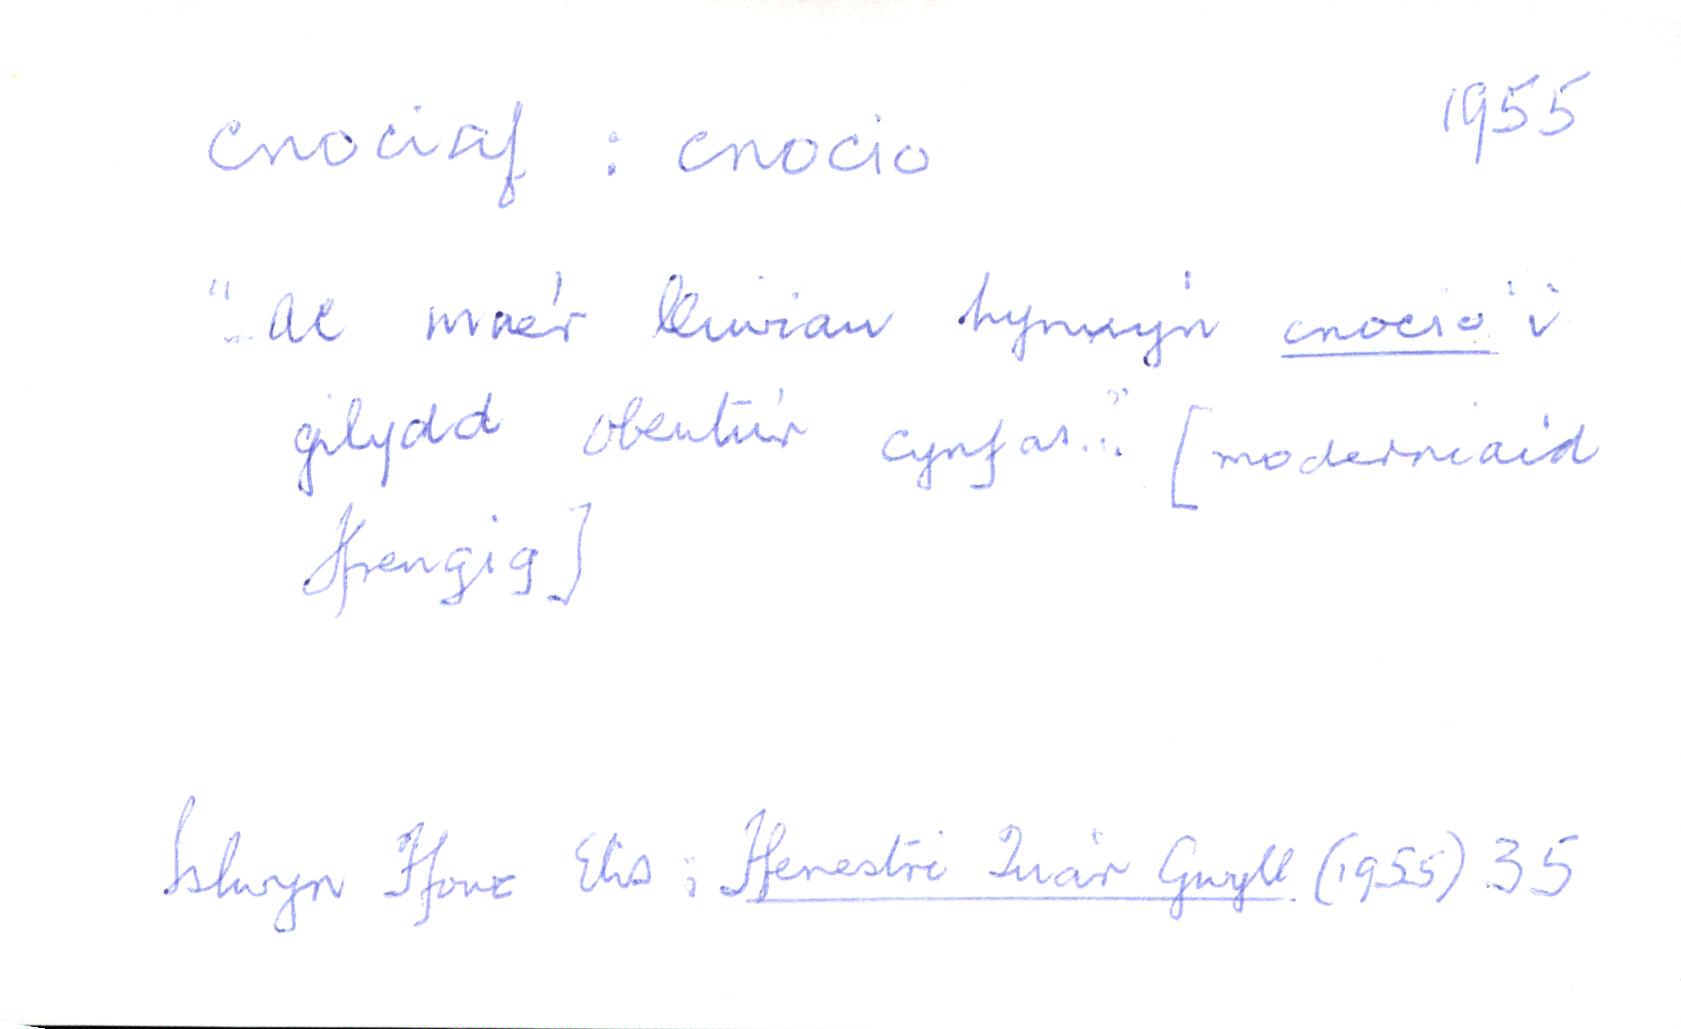 cnociaf : cnocio 1955
"..ac mae'r lliwiau hynny'n cnocio'i
gilydd oddiar cynfas..." [moderniaid
Ffrengig]
Islwyn Ffowc Elis : Ffenestri Tua'r Gwyll (1955) 35